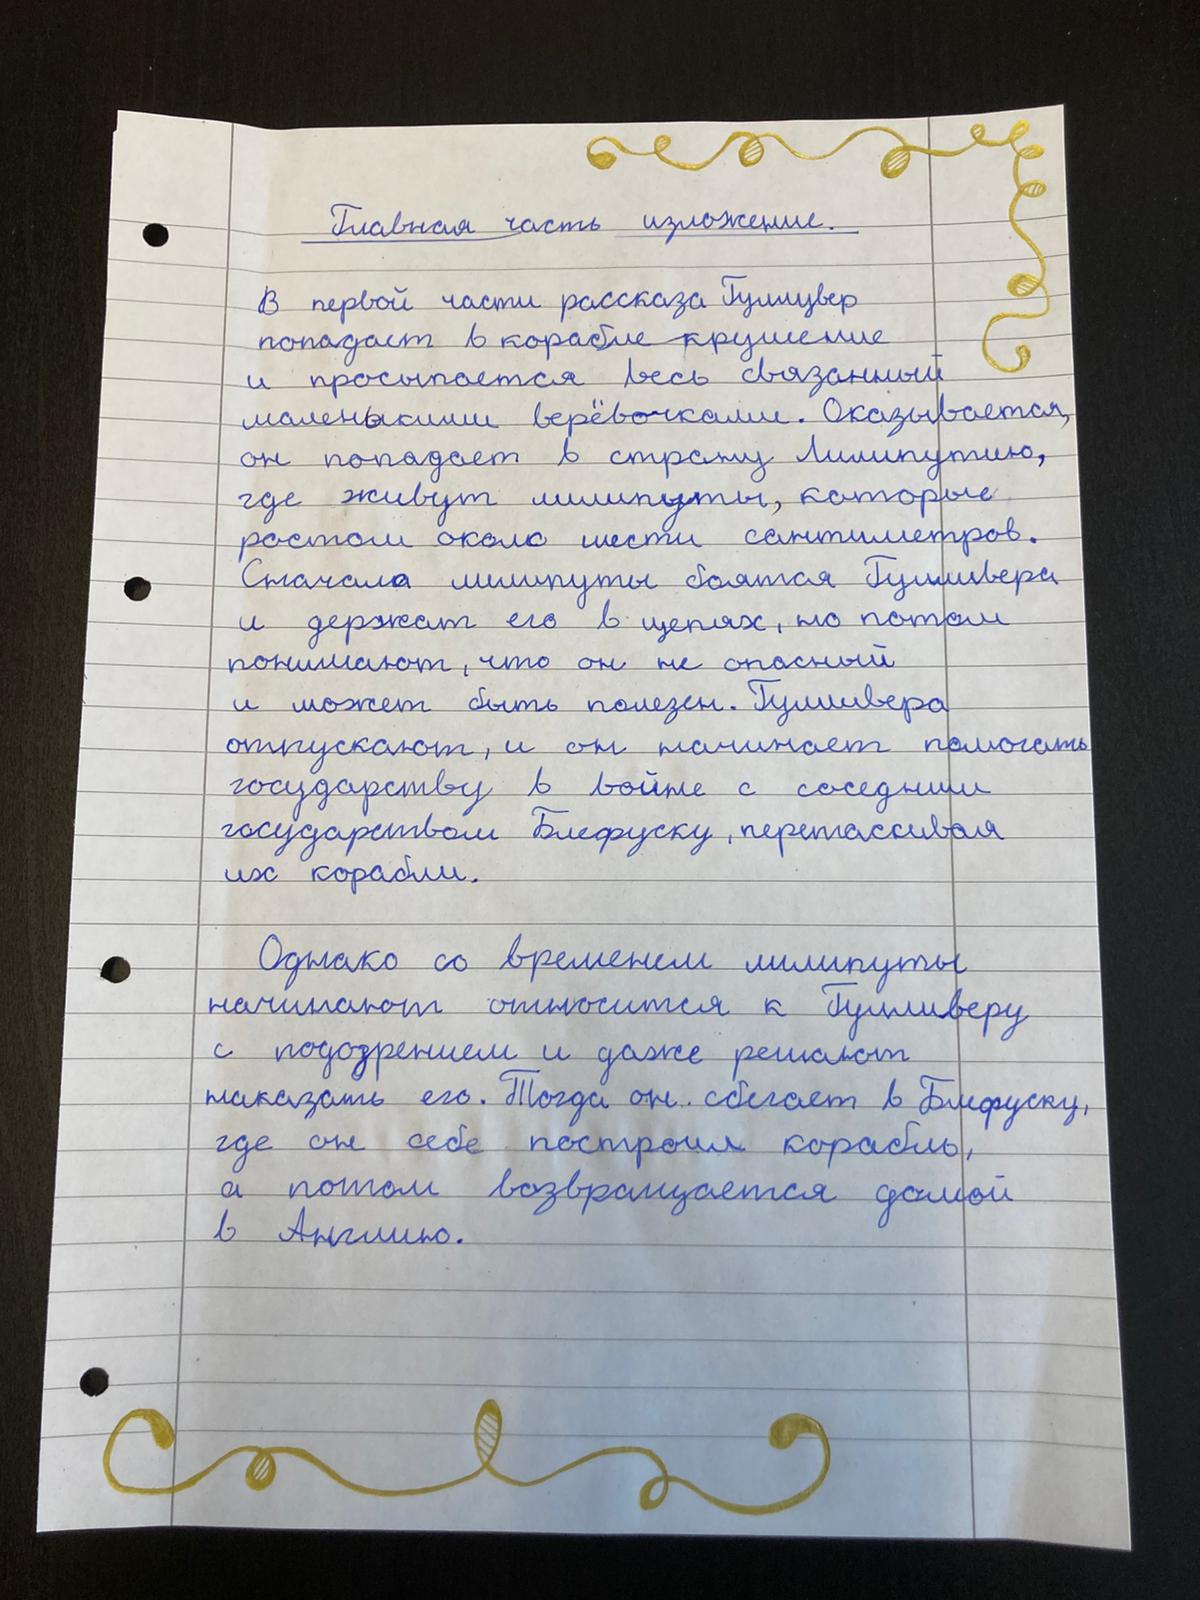 Главная часть изложение.
В первой части рассказа Гулливер
попадает в корабле крушение
и просыпается весь связанный
маленькими верёвочками. Оказывается,
он попадает в страну Лилипутию,
где живут лилипуты, которые
ростом около шести сантиметров.
Сначала лилипуты боятся Гулливера
и держат его в цепях, но потом
понимают, что он не опасный
и может быть полезен. Гулливера
отпускают, и он начинает помогать
государству в войне с соседним
государством Блефуску, перетассивая
их корабли.
Однако со временем лилипуты
начинают относится к Гулливеру
с подозрением и даже решают
наказать его. Тогда он сбегает в Блефуску,
где он себе построил корабль,
а потом возвращается домой
в Англию.